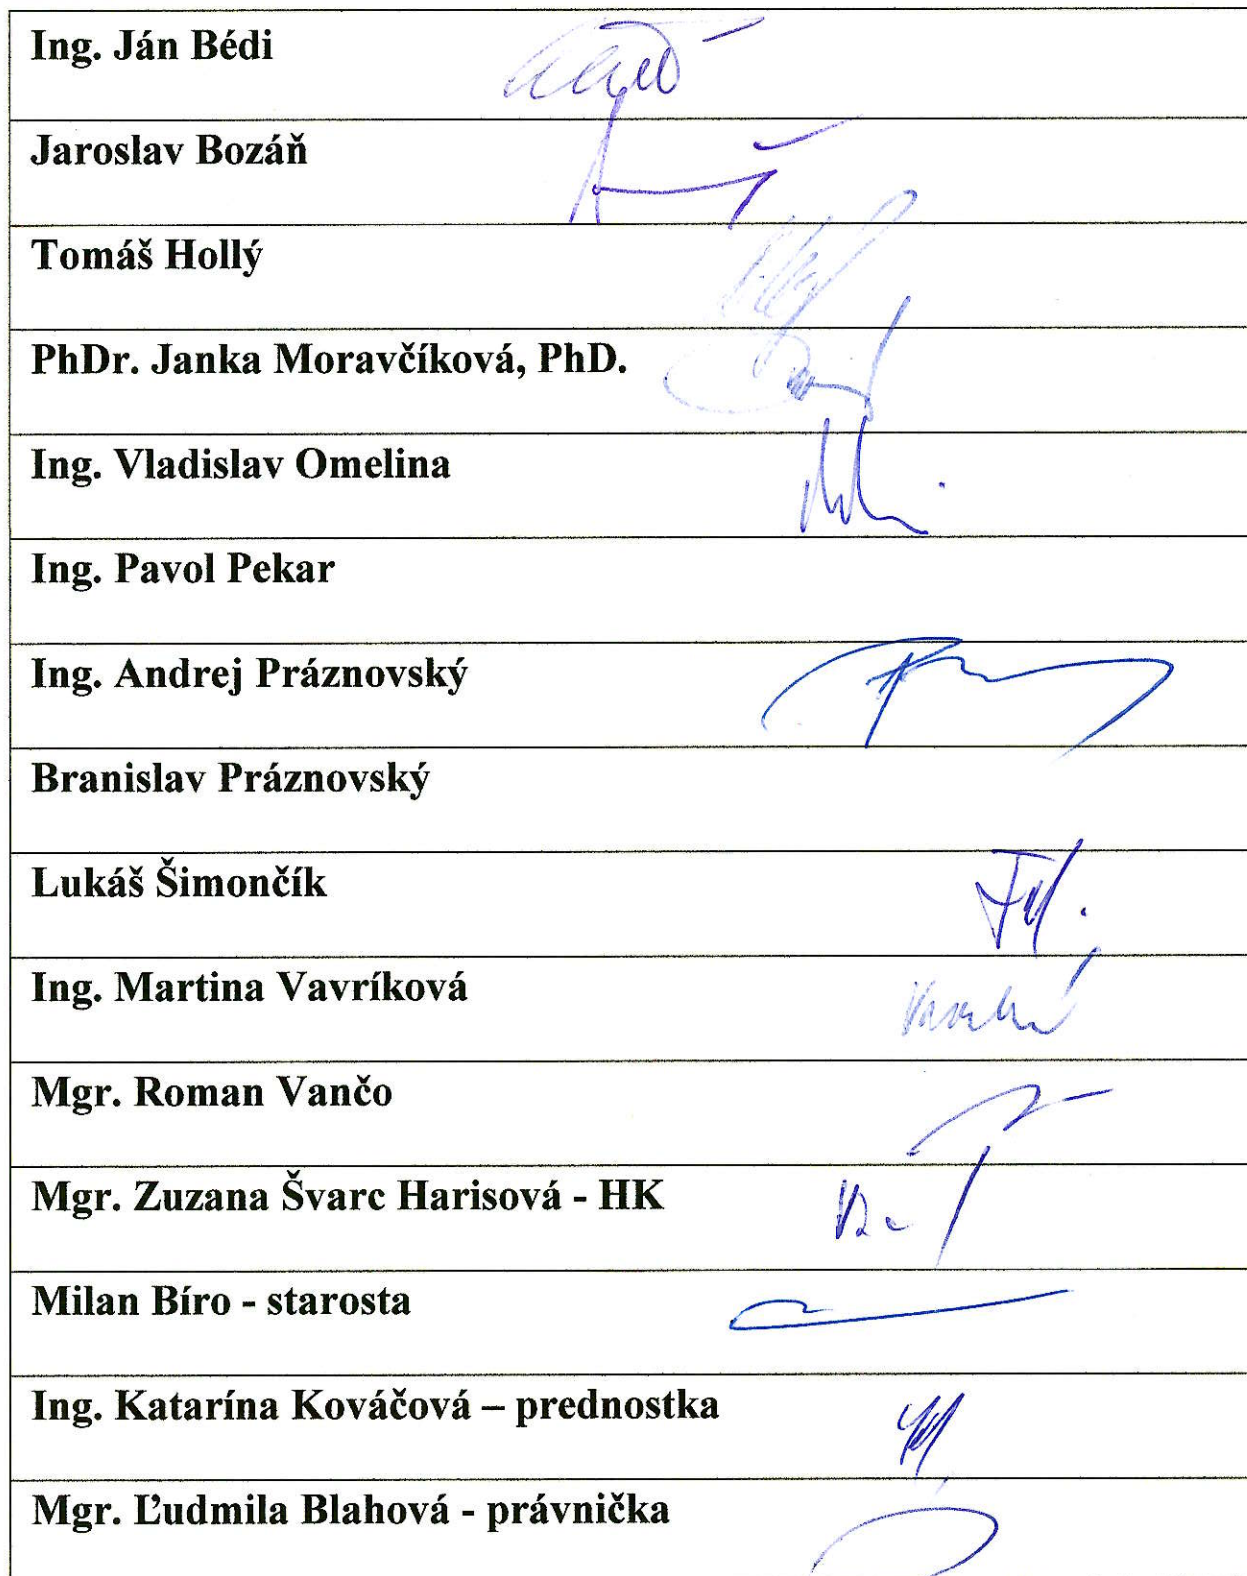 Ing. Ján Bédi
Jaroslav Bozáň
Tomáš Hollý
PhDr. Janka Moravčíková, PhD.
Ing. Vladislav Omelina
Ing. Pavol Pekar
Ing. Andrej Práznovský
Branislav Práznovský
Lukáš Šimončík
Ing. Martina Vavríková
Mgr. Roman Vančo
Mgr. Zuzana Švarc Harisová - HK
Milan Bíro - starosta
Ing. Katarína Kováčová – prednostka
Mgr. Ľudmila Blahová - právnička